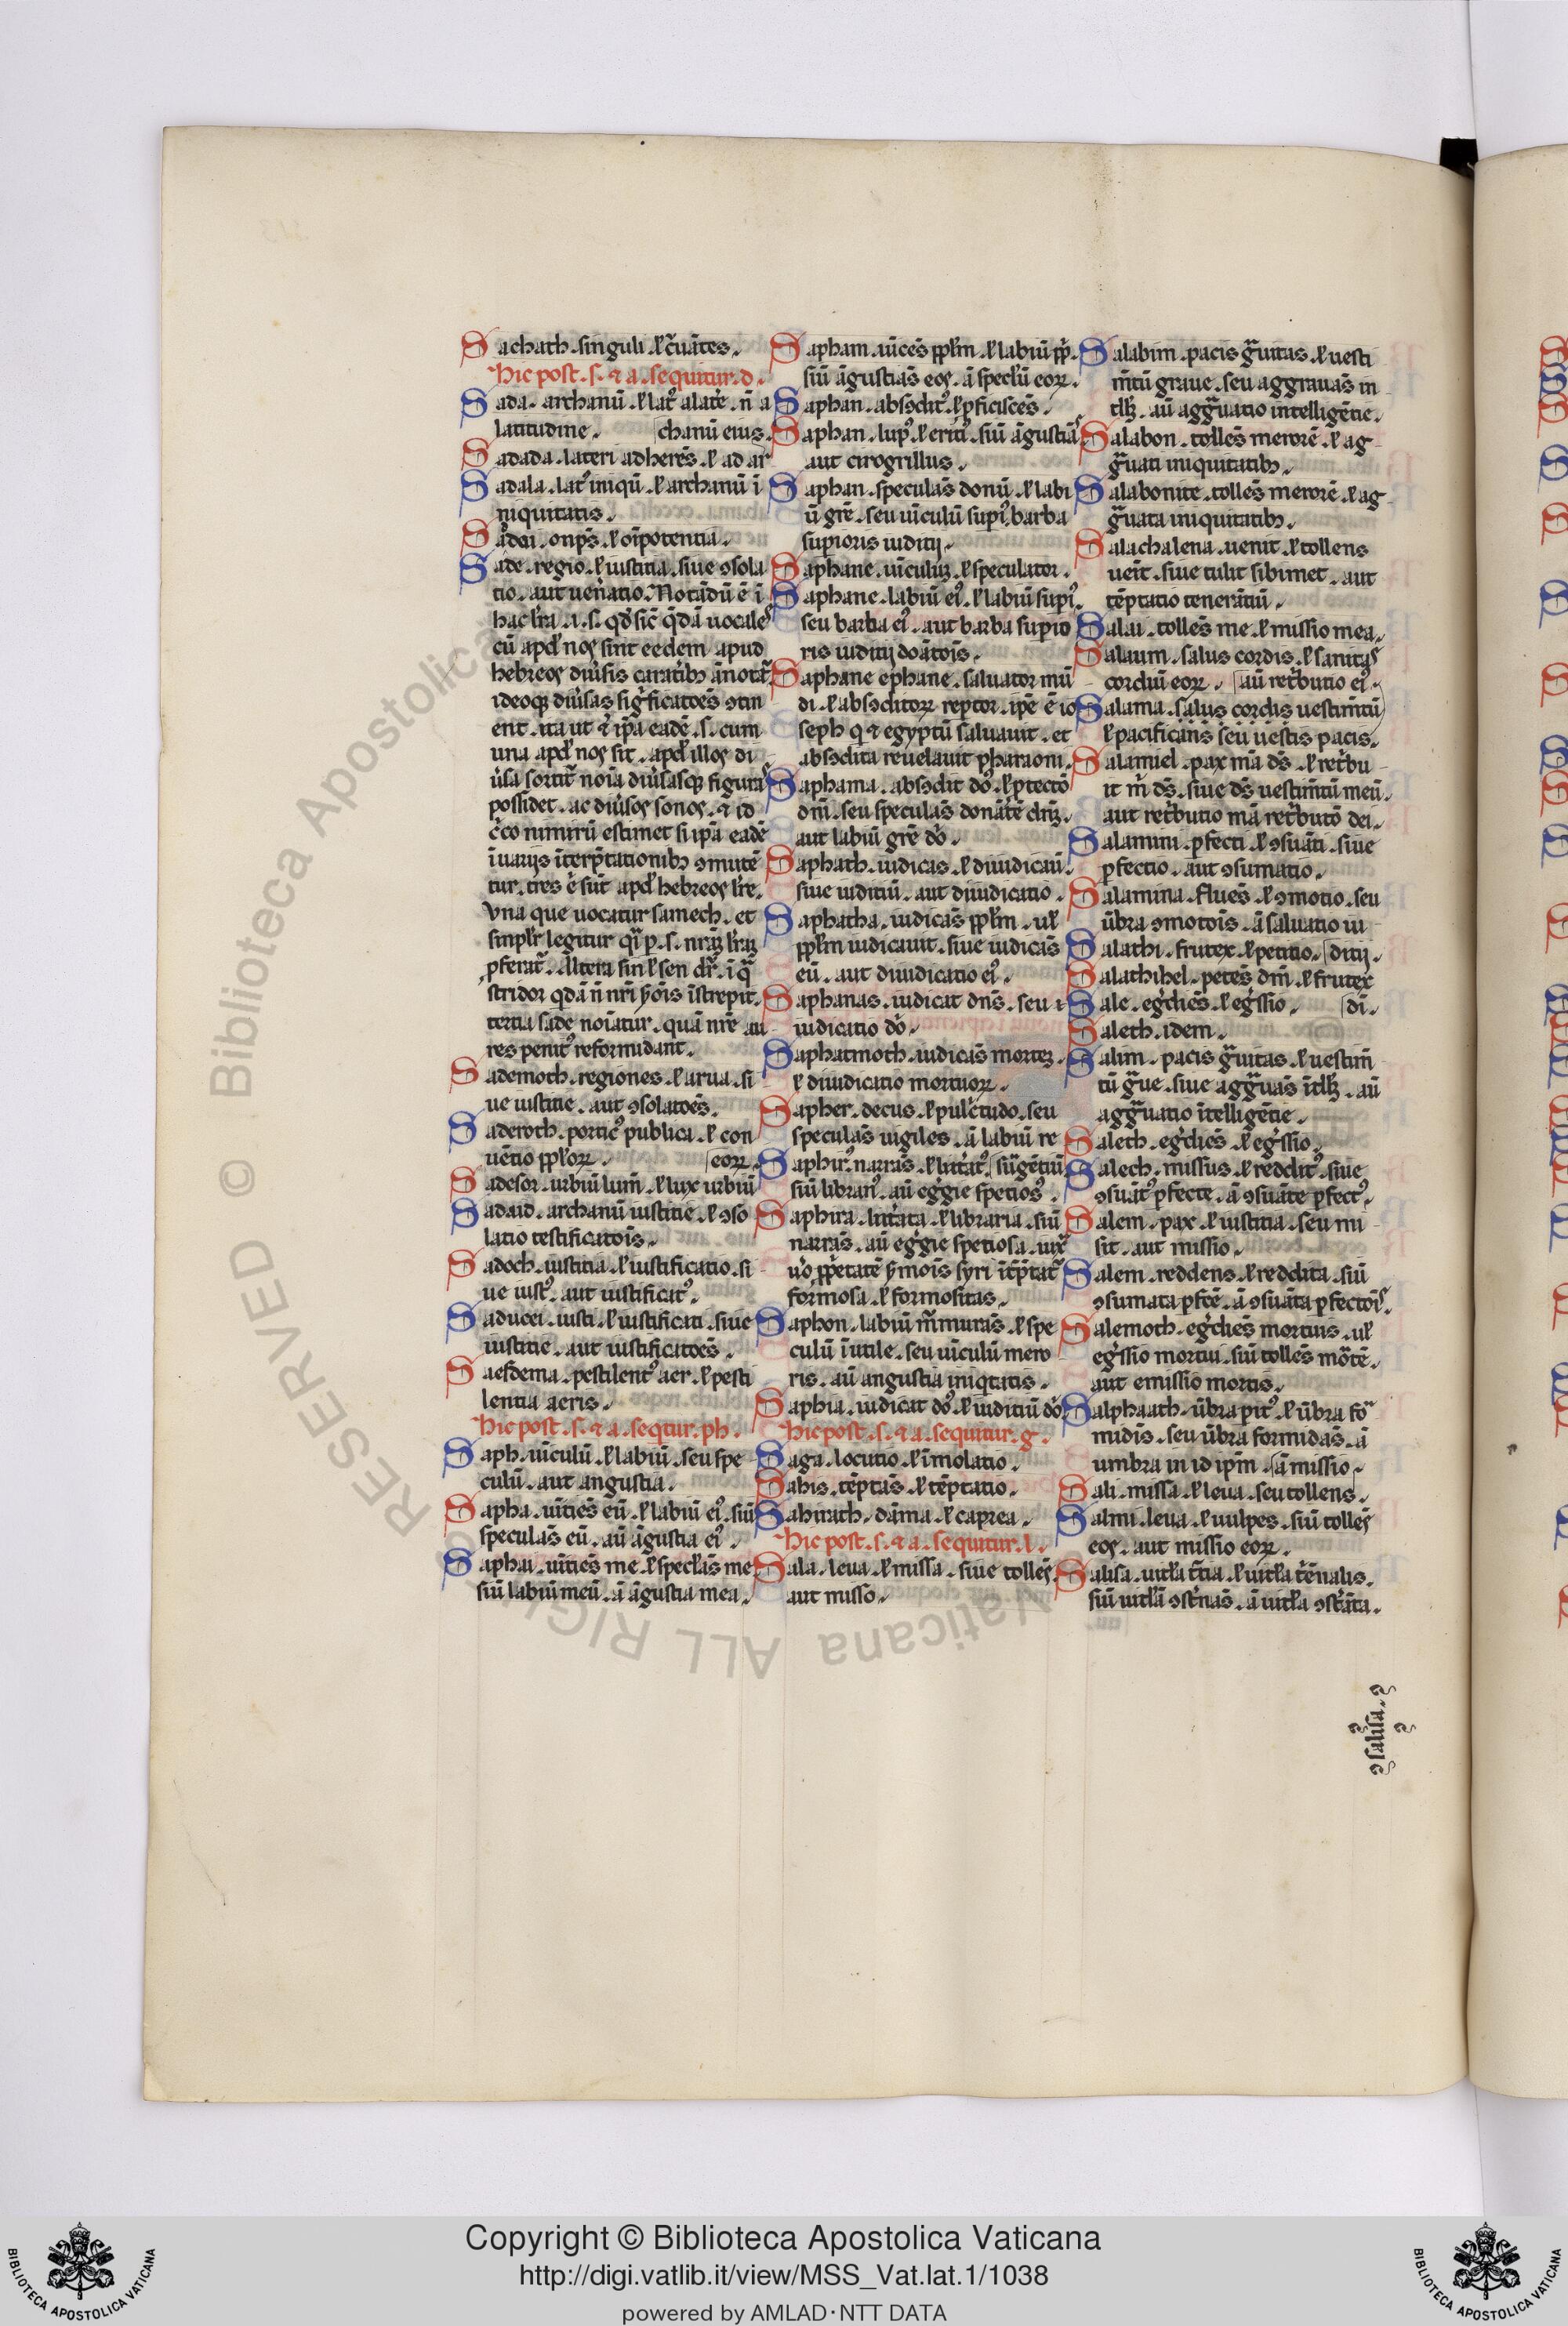 Sachath. singuli. ł c̃uãtes.
Hic post. s. ⁊ a. sequitur. d.
Sada. archanũ. ł lat᷒ alat̾e. ñ a
latitudine. chanũ eius.
Sadada. lateri adherẽs. ł ad ar
Sadala. lat᷒ iniqũ. ł archanũ ĩ
niquitatis.
Saddi. onp̃s. ł oĩpotentia.
Sade. regio. ł iustitia. siue ↄsola
tio. aut uen̾atio. Notãdũ ẽ ĩ
hac lr̃a. i. s. qđ sic̃ q̃dã uocales
cũ apđ nos sint eedem apud
hebreos diũsis caratib᷒ ãnotãt̾
ideoqꝫ diũsas sig̾ficatoẽs ↄtin
ent. ita ut ⁊ ip̃a eadẽ. s. cum
una apđ nos sit. apđ illos di
ũsa sortit̾ noĩa diũsasqꝫ figuras
possidet. ac diũsos sonos. ⁊ id
c̾co nimirũ estimet si ip̃a eadẽ
ĩ uarijs ĩterp̃tationib᷒ ↄmutẽ
tur. tres ẽ sũt apđ hebreos lr̃e.
Vna que uocatur samech. et
simpłr legitur q̃ı p. s. nrãꝫ lr̃aꝫ
ꝓferat̾. Altera sin ł sen dr̃. ĩ q̃
stridor qđã ñ nr̃i ẏõis ĩstrepit.
tertia sade noĩatur. quã nr̃e au
res penit᷒ reformidant.
Sademoth. regiones. ł arua. si
ue iustitie. aut ↄsolatoẽs.
Saderoth. portic᷒ publica. ł con
uẽtio ppl̾oꝝ. eoꝝ.
Sadesor. urbiũ lum̃. ł lux urbiũ
Sadaid. archanũ iustitie. ł ↄso
latio testificatoĩs.
Sadoch. iustitia. ł iustificatio. si
ue iust᷒. aut iustificat᷒.
Saducei. iusti. ł iustificati. siue
iustitie. aut iustificatoẽs.
Saesdema. pestilent᷒ aer. ł pesti
lentia aeris.
Hic post. s. ⁊ a. seqtur. ph.
Saph. uĩculũ. ł labiũ. seu spe
culũ. aut angustia.
Sapha. uĩciẽs eũ. ł labiũ ei᷒. siũ
speculãs eũ. aũ ãgustia ei᷒.
Saphai. uĩtiẽs me. ł specłãs me
siũ labiũ meũ. ã ãgustia mea.
Sapham. uĩcẽs ppłm. ł labiũ pp̾.
siũ ãgustiãs eos. ã specl̾ũ eoꝝ.
Saphan. absↄdit᷒. ł ꝓficiscẽs.
Saphan. lup᷒. ł eriti᷒. siũ ãgustiãs
aut cirogrillus.
Saphan. speculãs donũ. ł labi
ũ gr̃e. seu uĩculũ supi᷒. barba
supioris iuditij.
Saphane. uĩculũꝫ. ł speculator.
Saphane. labiũ ei᷒. ł labiũ supi᷒.
seu barba ei᷒. aut barba supio
ris iuditij doãtoĩs.
Saphane ephane. saluator mũ
di. ł absↄditoꝝ reptor. ip̃e ẽ io
seph q ⁊ egyptũ saluauit. et
absↄdita reuelauit pharaoni.
Saphama. absↄdit do᷒. ł ꝓtectõ
dñi. seu speculãs donãtẽ dñꝫ.
aut labiũ gr̃e do᷒.
Saphath. iudicas. ł diiudicaũ.
siue iuditiũ. aut diiudicatio.
Saphatha. iudicãs ppłm. uł
ppłm iudicauit. siue iudicãs
eũ. aut diiudicatio ei᷒.
Saphanas. iudicat dñs. seu ı
iudicatio do᷒.
Saphatmoth. iudicãs morteꝫ.
ł diiudicatio mortuoꝝ.
Sapher. decus. ł pulc̾tudo. seu
speculãs uigiles. ã labiũ re
Saphir᷒. narrãs. ł litt̾at᷒. sũgẽtiũ
siũ libran᷒. aũ egg̾ie spetios᷒.
Saphira. litt̾ata. ł libraria. siũ
narrãs. aũ egg̾ie spetiosa. iux̃
uo᷒ pp̾etatẽ s̾mois syri ĩtp̾tat̾
formosa. ł formositas.
Saphon. labiũ m̃murãs. ł spe
culũ ĩutile. seu uĩculũ mero
ris. aũ angustia iniqtatis.
Saphia. iudicat do᷒. ł iuditiũ do᷒.
Hic post. s. ⁊ a. sequitur. g.
Saga. locutio. ł ĩmolatio.
Sahis. tẽptãs. ł tẽptatio.
Sahirath. dãma. ł caprea.
Hic post. s. ⁊ a. sequitur. l.
Sala. leua. ł missa. siue tolles.
aut misso.
Salabim. pacis g̃uitas. ł uesti
m̃tũ graue. seu aggrauãs in
tłꝫ. aũ agg̃uatio intelligẽtie.
Salabon. tollẽs merorẽ. ł ag
g̃uati iniquitatib᷒.
Salabonite. tollẽs merorẽ. ł ag
g̃uata iniquitatib᷒.
Salachalena. uenit. ł tollens
ueit̃. siue tulit sibimet. aut
tẽptatio tenerãtiũ.
Salai. tollẽs me. ł missio mea.
Salaum. salus cordis. ł sanitas
cordiũ eoꝝ. aũ ret̾butio ei᷒.
Salama. salus cordis uestim̃tũ
ł pacificãns seu uestis pacis.
Salamiel. pax m̃a ds̃. ł ret̾bu
it m̾ ds̃. siue ds̃ uestim̃tũ meũ.
aut ret̾butio m̃a ret̾butõ dei.
Salamini. ꝑfecti. ł ↄsũati. siue
ꝑfectio. aut ↄsumatio.
Salamina. fluẽs. ł ↄmotio. seu
ũbra ↄmotoĩs. ã saluatio iu
Salathi. frutex. ł petitio. ditij.
Salathihel. petẽs dñi. ł frutex
Sale. eg̾diẽs. ł eg̾ssio. di̾.
Saleth. idem.
Salim. pacis g̃uitas. ł uestim̃
tũ g̃ue. siue agg̃uãs ĩtłꝫ. aũ
agg̃uatio ĩtelligẽtie.
Salech. eg̾diẽs. ł eg̾ssio.
Salech. missus. ł reddit᷒. siue
ↄsũat᷒ ꝑfecte. ã ↄsũate ꝑfect᷒.
Salem. pax. ł iustitia. seu mi
sit. aut missio.
Salem. reddens. ł reddita. siũ
ↄsumata ꝑfcẽ. ã ↄsũata ꝑfectoĩs.
Salemoth. eg̾diẽs mortuis. uł
eg̾ssio mortui. siũ tollẽs mõtẽ.
aut emissio mortis.
Salphaath. ũbra pit᷒. ł ũbra fo̾
midis. seu ũbra formidãs. ã
umbra in id ip̃m. ã missio.
Sali. missa. ł leua. seu tollens.
Salmi. leua. ł uulpes. siũ tolles
eos. aut missio eoꝝ.
Salisa. uitl̾a t̃tia. ł uitl̾a t̾ẽnalis.
siũ uitl̾ã ↄst̾nãs. ã uitl̾a ↄst̾ata.
salisa.
Copyright © Biblioteca Apostolica Vaticana
http://digi.vatlib.it/view/MSS_Vat.lat.1/1038
powered by AMLAD·NTT DATA
BIBLIOTECA APOSTOLICA VATICANA
BIBLIOTECA APOSTOLICA VATICANA
© Biblioteca Apostolica Vaticana ALL RIGHTS RESERVED